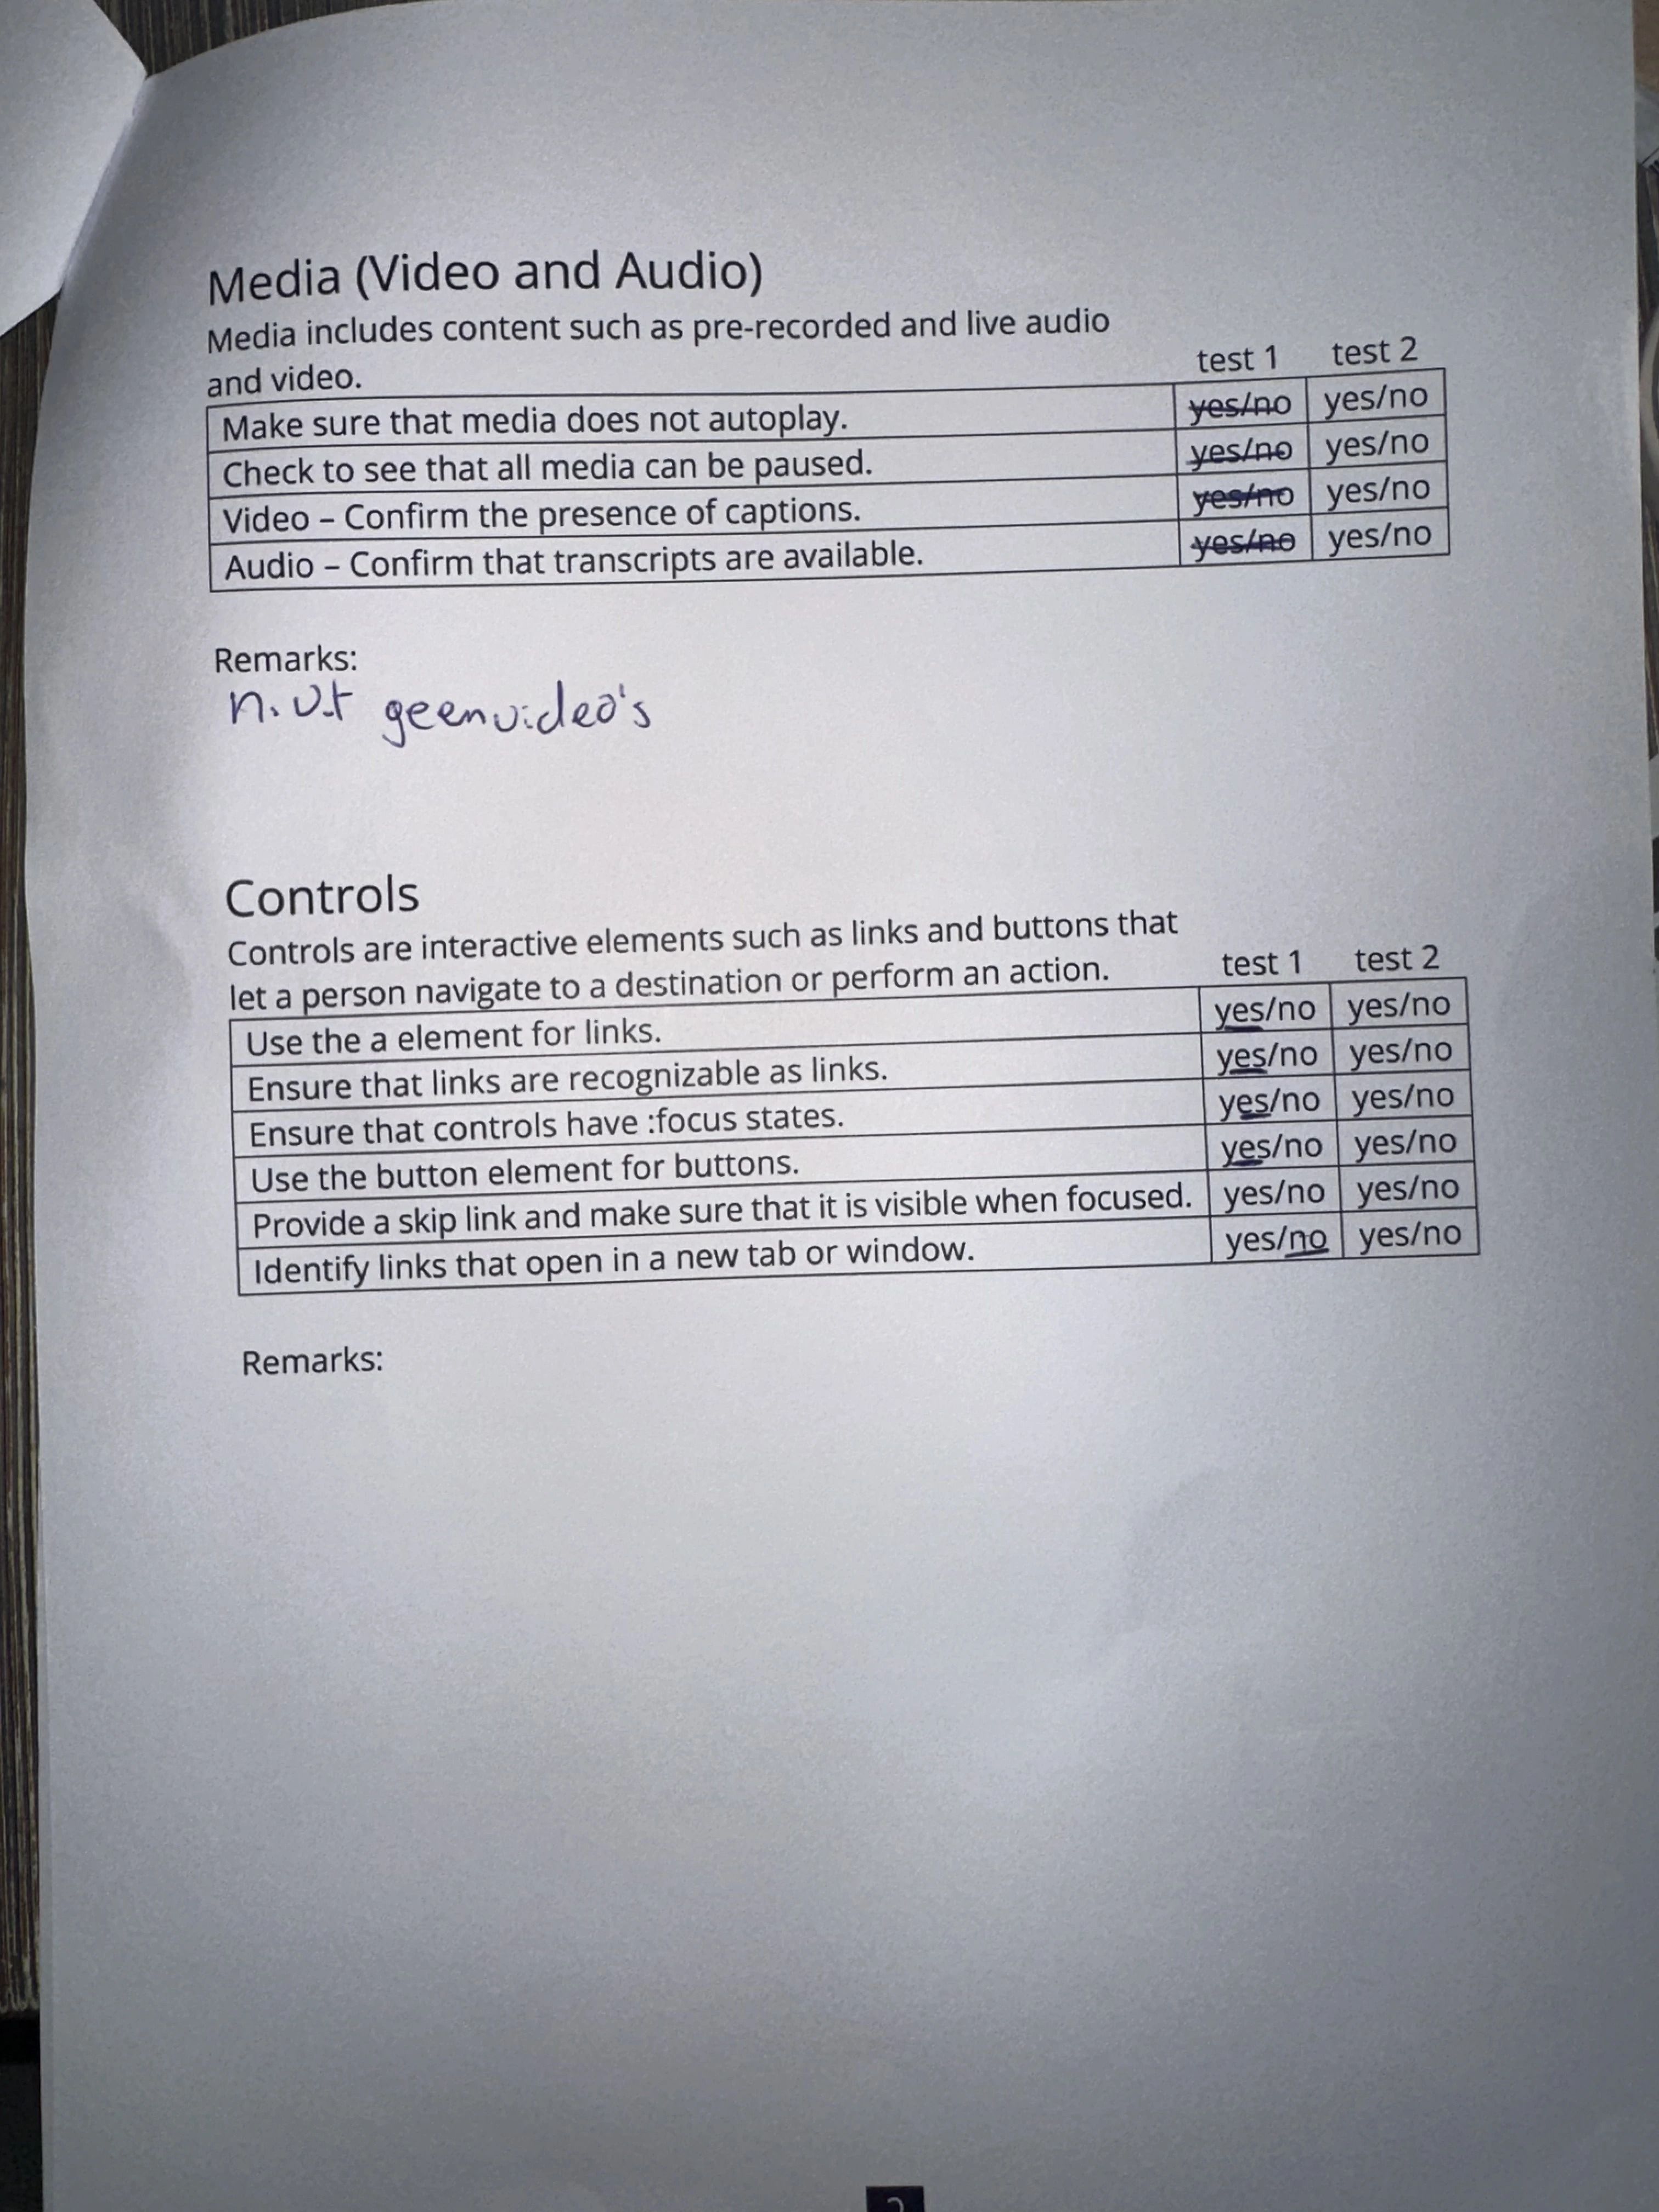 Media (Video and Audio)
Media includes content such as pre-recorded and live audio
and video. test 1 test 2
Make sure that media does not autoplay. yes/no yes/no
Check to see that all media can be paused. yes/no yes/no
Video – Confirm the presence of captions. yes/no yes/no
Audio – Confirm that transcripts are available. yes/no yes/no
Remarks:
n.v.t geen video's
Controls
Controls are interactive elements such as links and buttons that
let a person navigate to a destination or perform an action. test 1 test 2
Use the a element for links. yes/no yes/no
Ensure that links are recognizable as links. yes/no yes/no
Ensure that controls have :focus states. yes/no yes/no
Use the button element for buttons. yes/no yes/no
Provide a skip link and make sure that it is visible when focused. yes/no yes/no
Identify links that open in a new tab or window. yes/no yes/no
Remarks: